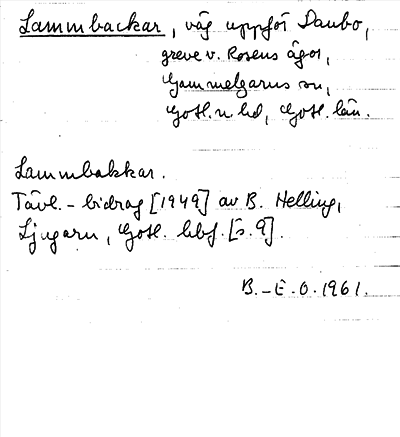 Lammbackar, väg uppför Daubo,
greve v. Rosens ägor,
Gammelgarns sn,
Gotl. n. hd, Gotl. län.
Lammbakkar.
Tävl.-bidrag [1949] av B. Helling,
Ljugarn, Gotl. hbf. [s. 9].
B.-E. O. 1961.